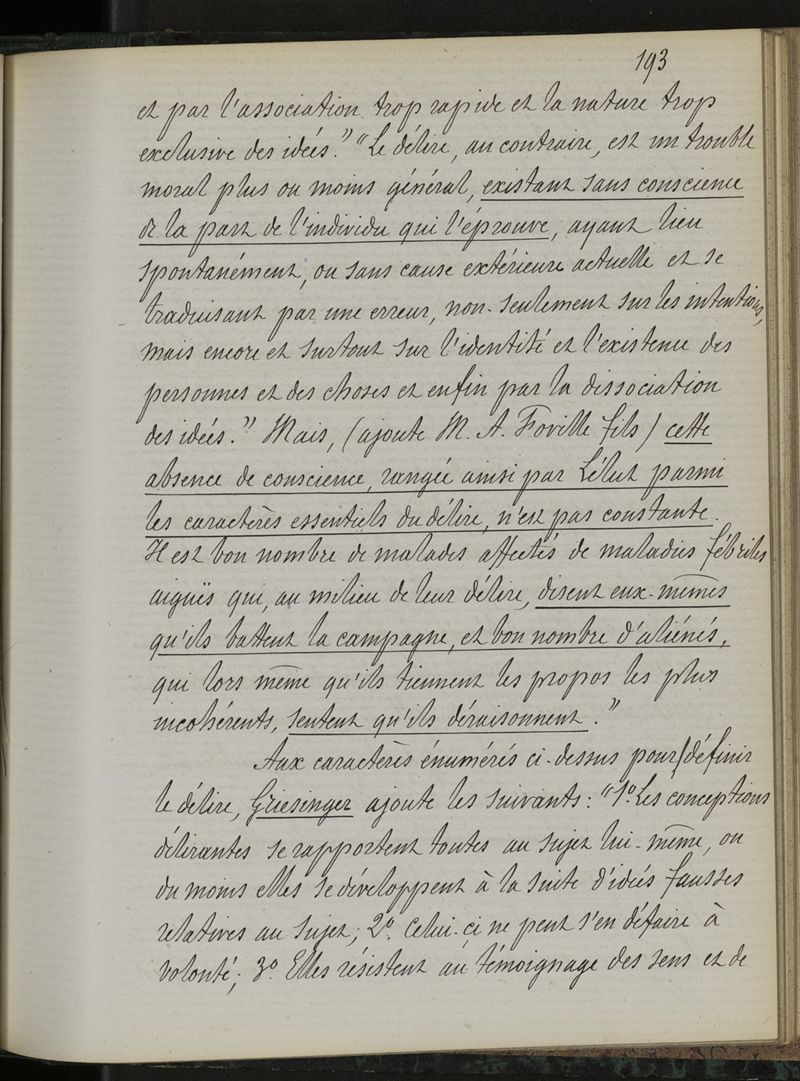 193
et par l'association trop rapide et la nature trop
exclusive des ideés." "Le délire, au contraire, est un trouble
moral plus ou moins général, existant sans conscience
de la part de l'individu qui l'éprouve, ayant lieu
spontanément, ou sans cause extérieure actuelle et se
traduisant par une erreur, non-seulement sur les intentions,
mais encore et surtout sur l'identité et l'existence des
personnes et des choses et enfin par la dissociation
des ideés." Mais, (ajoute M. A. Foville fils) cette
absence de conscience, rangée ainsi par Lélut parmi
les caractères essentiels du délire, n'est pas constante.
Il est bon nombre de malades affectés de maladies fébriles
aiguës qui, au milieu de leur délire, disent eux-mêmes
qu'ils battent la campagne, et bon nombre d'aliénés,
qui lors même qu'ils tiennent les propos les plus
incohérents, sentent qu'ils déraisonnent."
Aux caractères énumérés ci-dessus pour définir
le délire, Griesinger ajoute les suivants: "1º. Les conceptions
délirantes se rapportent toutes au sujet lui-même, ou
du moins elles se développent à la suite d'ideés fausses
relatives au sujet; 2º. Celui-ci ne peut s'en défaire à
volonté; 3º. Elles résistent au témoignage des sens et de